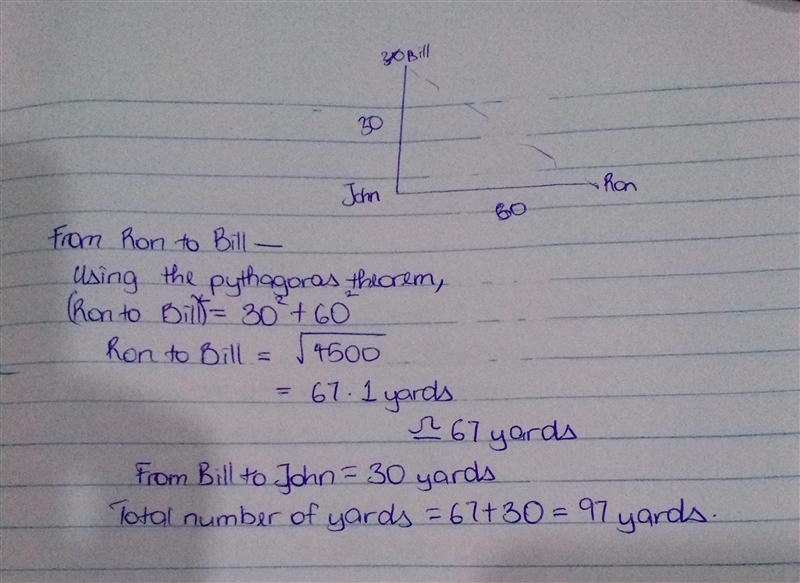 30 Bill
30
John
Ron
60
From Ron to Bill —
Using the pythagoras theorem,
(Ron to Bill)² = 30² + 60²
Ron to Bill = √4500
= 67.1 yards
≃ 67 yards
From Bill to John = 30 yards
Total number of yards = 67+30 = 97 yards.